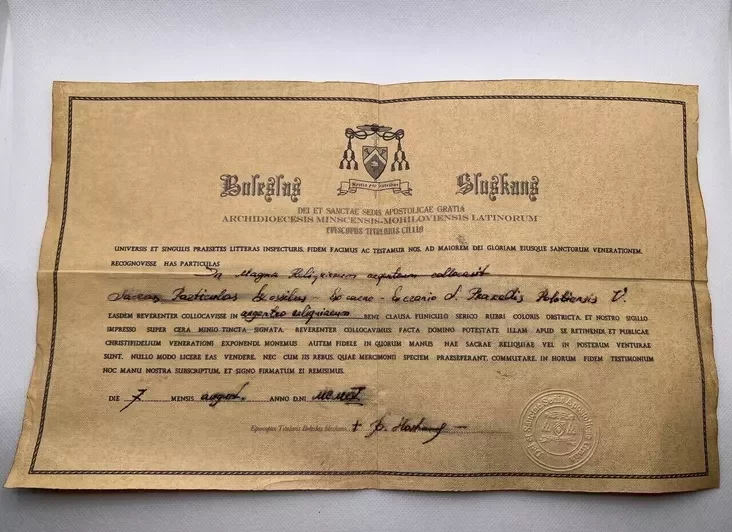 Boleslas Sluskans
DEI ET SANCTAE SEDIS APOSTOLICAE GRATIA
ARCHIDIOECESIS MINSCENSIS-MOHILOVIENSIS LATINORUM
EPISCOPUS TITULARIS CILLIO
UNIVERSIS ET SINGULIS PRAESETES LITTERAS INSPECTURIS, FIDEM FACIMUS AC TESTAMUR NOS, AD MAIOREM DEI GLORIAM EIUSQUE SANCTORUM VENERATIONEM,
RECOGNOVISSE HAS PARTICULAS
In Magna Reliquiareos argenteum collocavit
Sacras Particulas Ex ossibus - S. Praxedis V.
EASDEM REVERENTER COLLOCAVISSE IN argenteo reliquiareum BENE CLAUSA FUNICULO SERICO RUBRI COLORIS OBSTRICTA, ET NOSTRO SIGILLO
IMPRESSO SUPER CERA MINIO TINCTA SIGNATA. REVERENTER COLLOCAVIMUS: FACTA DOMINO POTESTATE ILLAM APUD SE RETINENDI, ET PUBLICAE
CHRISTIFIDELIUM VENERATIONI EXPONENDI. MONEMUS AUTEM FIDELE IN QUORUM MANUS HAE SACRAE RELIQUIAE VEL IN POSTERUM VENTURAE
SUNT, NULLO MODO LICERE EAS VENDERE, NEC CUM IIS REBUS, QUAE MERCIMONII SPECIEM PRAESEFERANT, COMMUTARE. IN HORUM FIDEM TESTIMONIUM
HOC MANU NOSTRA SUBSCRIPTUM, ET SIGNO FIRMATUM EI REMISIMUS.
DIE 7 MENSIS august. ANNO D.NI
Episcopus Titularis Boleslas Sluskans